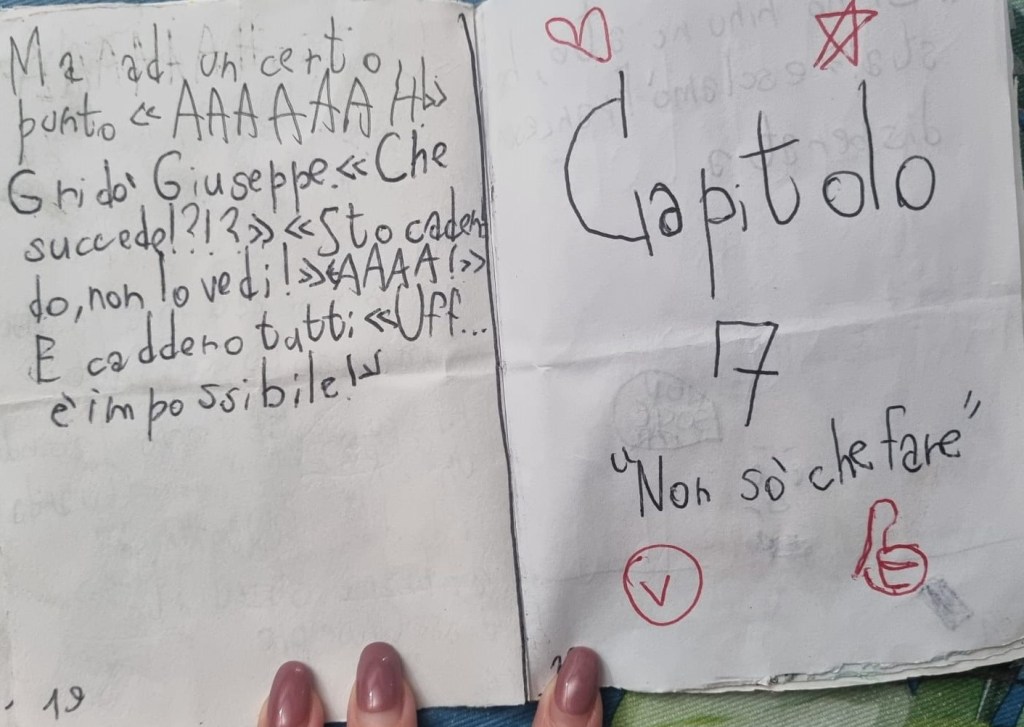 Ma ad un certo
punto «AAAAAAH!»
Gridò Giuseppe.«Che
succede!?!?» «Sto caden
do, non lo vedi!»«AAAA!»
E caddero tutti «Uff...
è impossibile!»
19
Capitolo
7
"Non sò che fare"
V